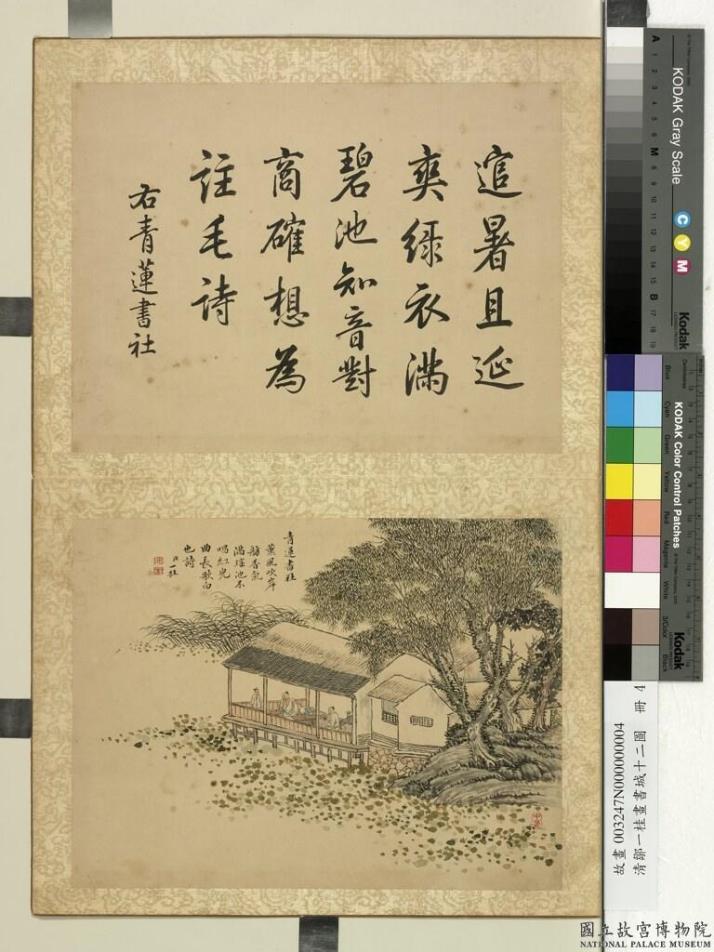 逭暑且延
爽綠衣滿
碧池知音對
商確想為
註毛詩
右青蓮書社
青蓮書社
薰風吹岸
香氣
滿瑤池不
唱紅兒
曲長歌白
也詩
臣一桂
KODAK Gray Scale
C Y M
Kodak
A 1 2 3 4 5 6 M 8 9 10 11 12 13 14 15 B 17 18 19
KODAK Color Control Patches
Blue Cyan Green Yellow Red Magenta White 3/Color Black
Kodak
故畫 003247N000000004
清鄒一桂畫書城十二圖 冊 4
國立故宮博物院
NATIONAL PALACE MUSEUM